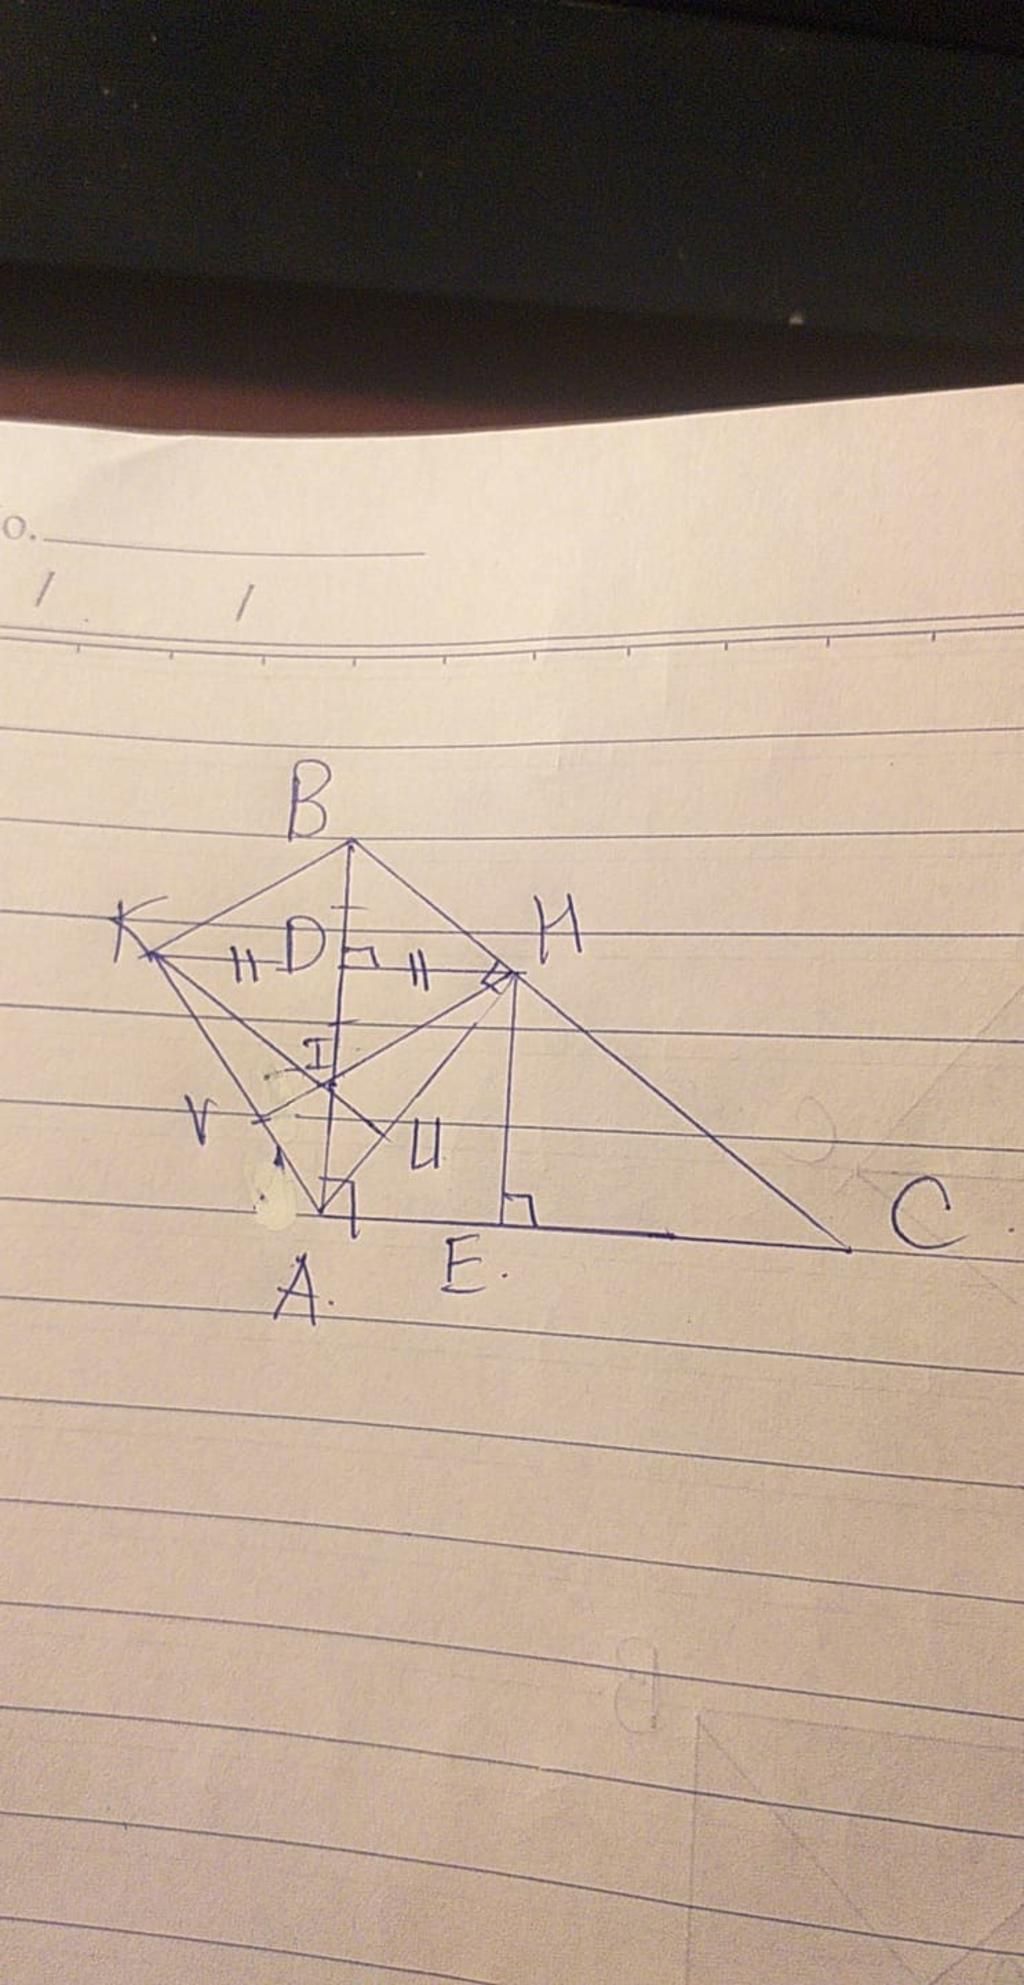 o.
/ /
B
K
D
H
I
V
U
C
A.
E.